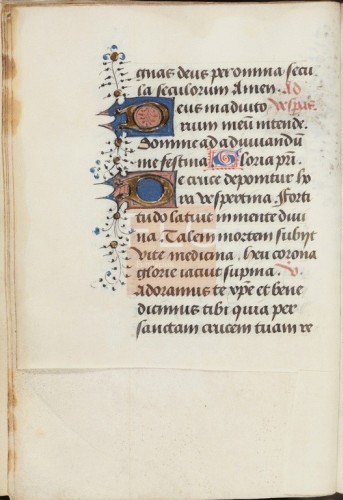 gnas deus per omnia secu
la seculorum Amen. Ad
Deus in adiuto vespas
rium meū intende.
Domine ad adiuvandū
me festina Gloria pri.
De cruce deponitur ho
ra vespertina Forti
tudo latuit in mente divi
na. Talem mortem subijt
vite medicina. heu corona
glorie iacuit supina. V.
Adoramus te xpe et bene
dicimus tibi quia per
sanctam crucem tuam re